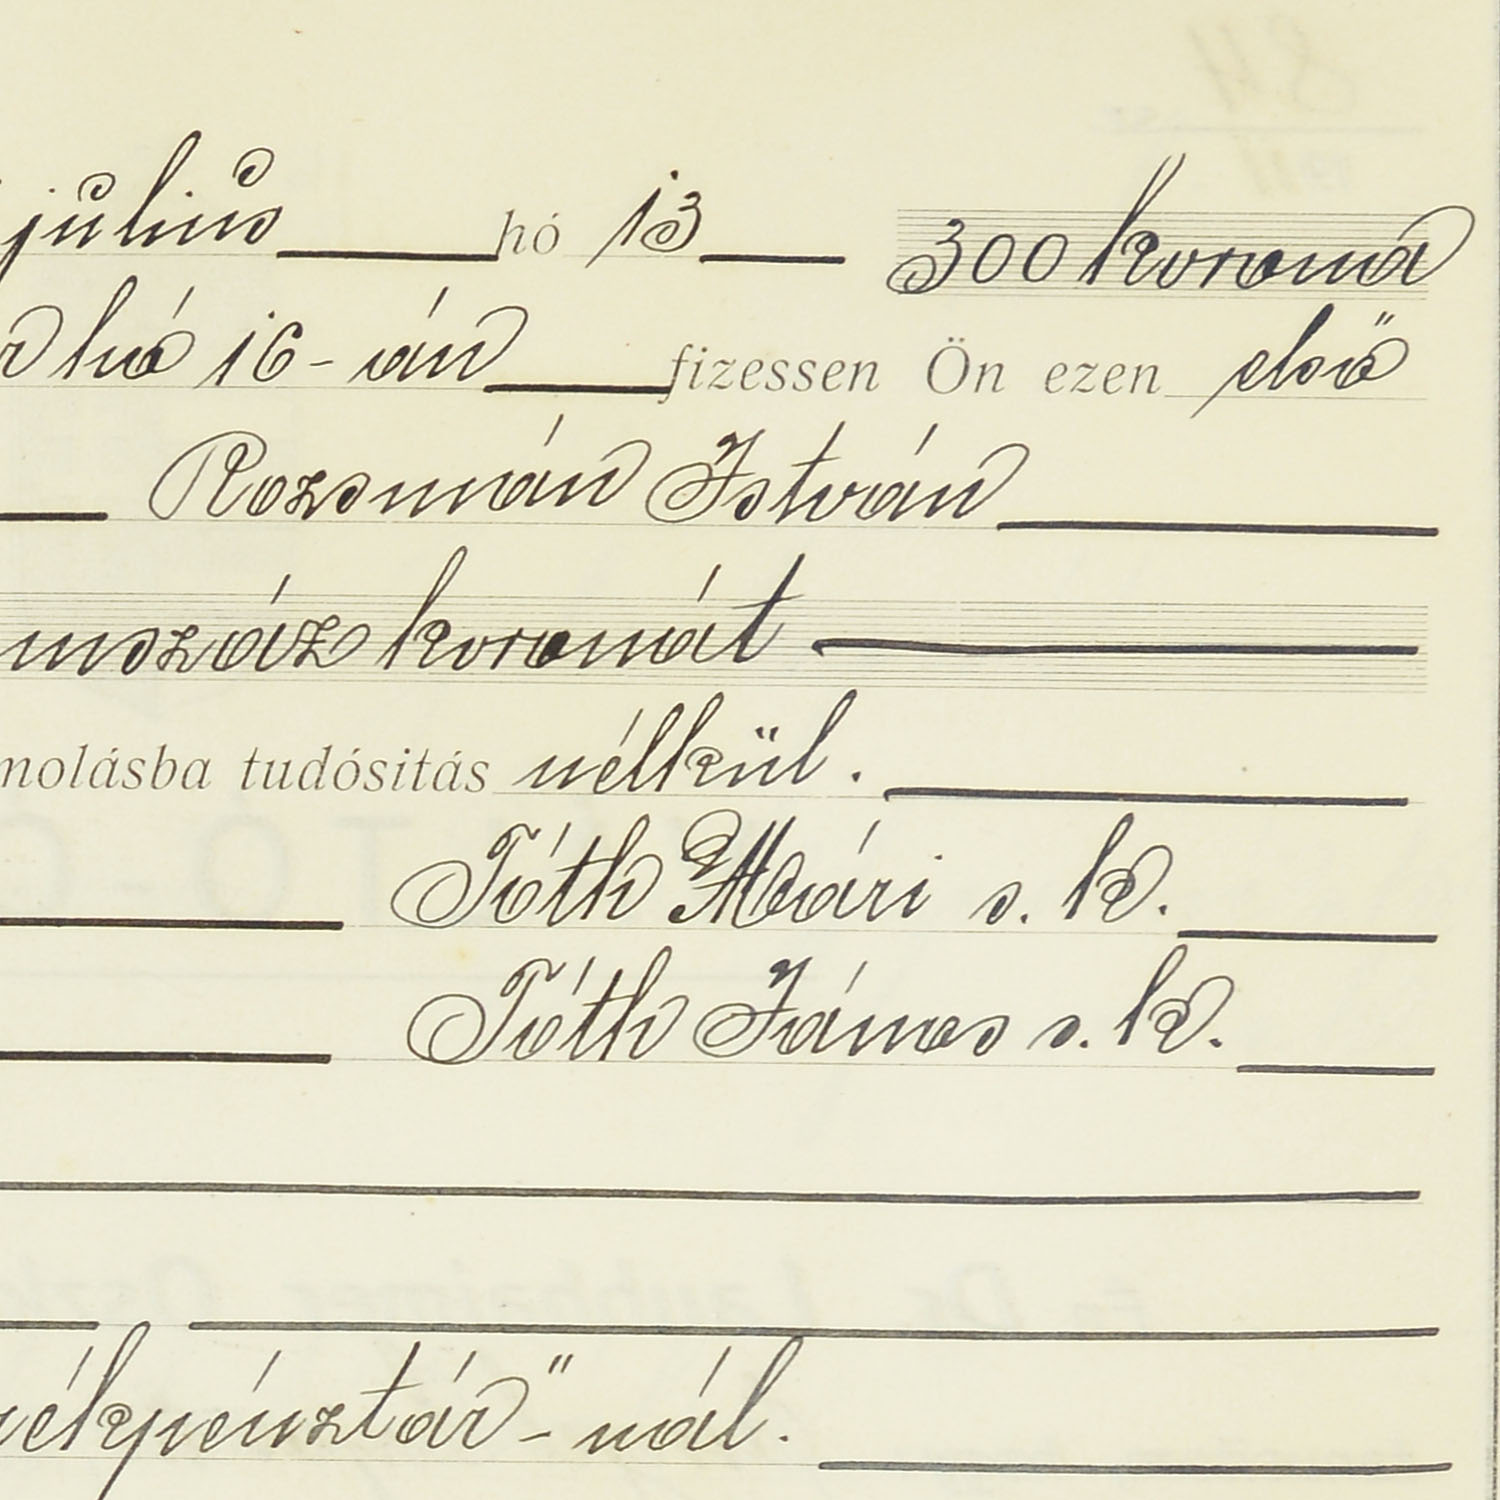 július hó 13 300 korona
r hó 16-án fizessen Ön ezen első
Rozsmán István
mszáz koronát
molásba tudósitás nélkül.
Tóth Mári s. k.
Tóth János s. k.
rékpénztár"-nál.